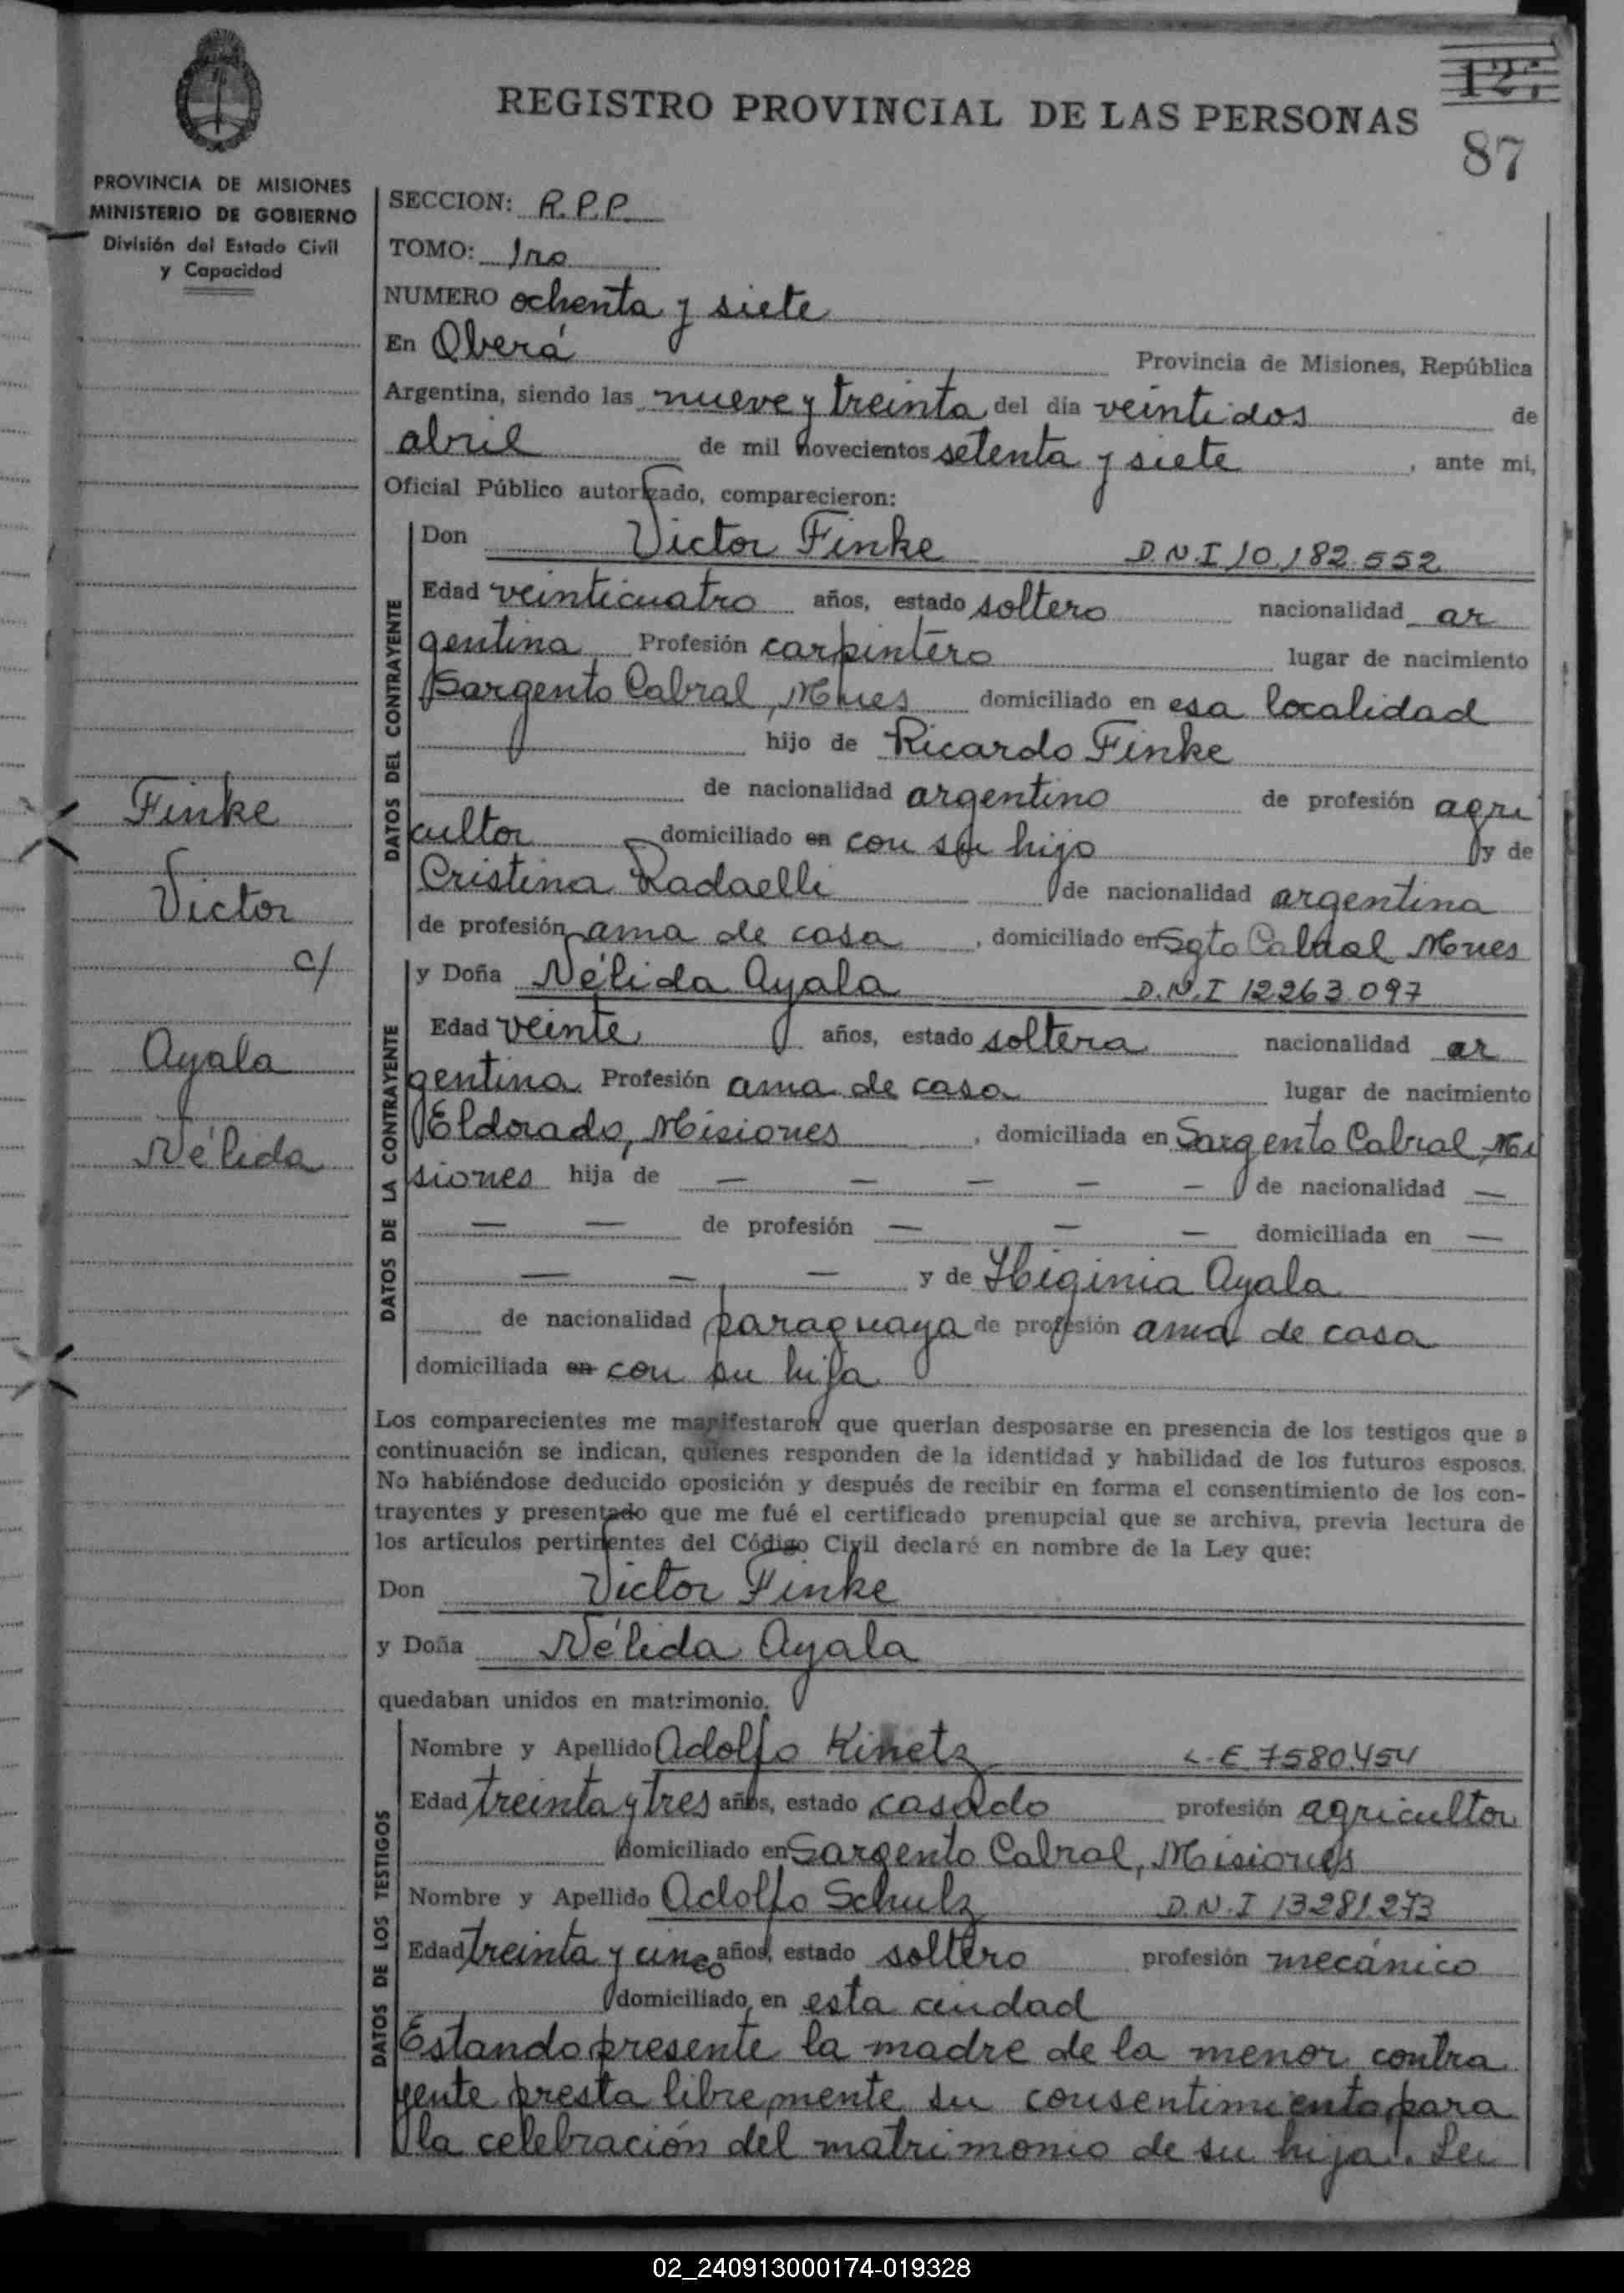 REGISTRO PROVINCIAL DE LAS PERSONAS
127
87
PROVINCIA DE MISIONES
MINISTERIO DE GOBIERNO
División del Estado Civil
y Capacidad
SECCION: R.P.P.
TOMO: 1ro
NUMERO ochenta y siete
En Oberá Provincia de Misiones, República
Argentina, siendo las nueve y treinta del día veintidos de
abril de mil novecientos setenta y siete, ante mi,
Oficial Público autorizado, comparecieron:
DATOS DEL CONTRAYENTE
Don Victor Finke D.N.I 10.182.552
Edad veinticuatro años, estado soltero nacionalidad ar
gentina Profesión carpintero lugar de nacimiento
Sargento Cabral, Mnes domiciliado en esa localidad
hijo de Ricardo Finke
de nacionalidad argentino de profesión agri
cultor domiciliado en con su hijo y de
Cristina Radaelli de nacionalidad argentina
de profesión ama de casa, domiciliado en Sgto Cabral Mnes
Finke
Victor
c/
Ayala
Nélida
DATOS DE LA CONTRAYENTE
y Doña Nélida Ayala D.N.I 12263.097
Edad veinte años, estado soltera nacionalidad ar
gentina Profesión ama de casa lugar de nacimiento
Eldorado, Misiones, domiciliada en Sargento Cabral, Mi
siones hija de — — — — — de nacionalidad —
— — de profesión — — — domiciliada en —
— — — y de Higinia Ayala
de nacionalidad paraguaya de profesión ama de casa
domiciliada en con su hija
Los comparecientes me manifestaron que querían desposarse en presencia de los testigos que a
continuación se indican, quienes responden de la identidad y habilidad de los futuros esposos.
No habiéndose deducido oposición y después de recibir en forma el consentimiento de los con-
trayentes y presentado que me fué el certificado prenupcial que se archiva, previa lectura de
los artículos pertinentes del Código Civil declaré en nombre de la Ley que:
Don Victor Finke
y Doña Nélida Ayala
quedaban unidos en matrimonio.
DATOS DE LOS TESTIGOS
Nombre y Apellido Adolfo Kinetz L.E 7580.454
Edad treinta y tres años, estado casado profesión agricultor
domiciliado en Sargento Cabral, Misiones
Nombre y Apellido Adolfo Schulz D.N.I 13281.273
Edad treinta y cinco años, estado soltero profesión mecánico
domiciliado en esta ciudad
Estando presente la madre de la menor contra
yente presta libremente su consentimiento para
la celebración del matrimonio de su hija. Lei
02_240913000174-019328